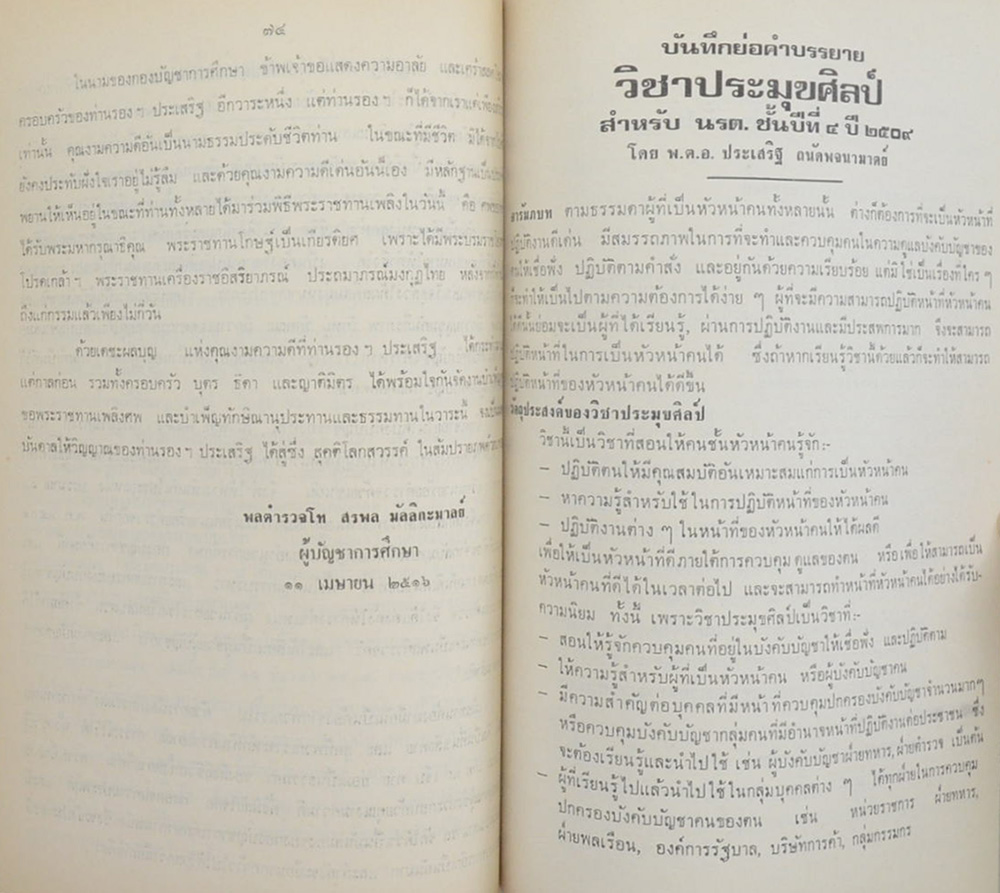 ๗๔
ในนามของกองบัญชาการศึกษา ข้าพเจ้าขอแสดงความอาลัย และเคร่า
ครอบครัวของท่านรอง ฯ ประเสริฐ อีกวาระหนึ่ง แต่ท่านรอง ฯ ก็ได้จากเราแต่เพียง
เท่านั้น คุณงามความดีอันเป็นนามธรรมประดับชีวิตท่าน ในขณะที่มีชีวิต มิได้จาก
ยังคงประทับฝังใจเราอยู่ไม่รู้ลืม และด้วยคุณงามความดีเด่นอันนี้เอง มีหลักฐานเป็น
พยานให้เห็นอยู่ในขณะที่ท่านทั้งหลายได้มาร่วมพิธีพระราชทานเพลิงในวันนี้ คือ
ได้รับพระมหากรุณาธิคุณ พระราชทานโกษฐ์เป็นเกียรติยศ เพราะได้มีพระบรมราช
โปรดเกล้า ฯ พระราชทานเครื่องราชอิสริยาภรณ์ ประถมาภรณ์มงกุฎไทย หลังจาก
ถึงแก่กรรมแล้วเพียงไม่กี่วัน
ด้วยเดชะผลบุญ แห่งคุณงามความดีที่ท่านรอง ฯ ประเสริฐ ได้กระทำ
แต่กาลก่อน รวมทั้งครอบครัว บุตร ธิดา และญาติมิตร ได้พร้อมใจกันจัดงาน
ขอพระราชทานเพลิงศพ และบำเพ็ญทักษิณานุประทานและธรรมทานในวาระนี้ จงเป็น
บันดาลให้วิญญาณของท่านรอง ฯ ประเสริฐ ได้สู่ซึ่ง สุคติโลกสวรรค์ ในสัมปรายภพ
พลตำรวจโท สรพล มัลลิกะมาลย์
ผู้บัญชาการศึกษา
๑๑ เมษายน ๒๕๑๖
บันทึกย่อคำบรรยาย
วิชาประมุขศิลป์
สำหรับ นรต. ชั้นปีที่ ๔ ปี ๒๕๐๙
โดย พ.ต.อ. ประเสริฐ ถนัดพจนามาตย์
อารัมภบท ตามธรรมดาผู้ที่เป็นหัวหน้าคนทั้งหลายนั้น ต่างก็ต้องการที่จะเป็นหัวหน้าที่
ปฏิบัติงานดีเด่น มีสมรรถภาพในการที่จะทำและควบคุมคนในความดูแลบังคับบัญชาของ
ตนให้เชื่อฟัง ปฏิบัติตามคำสั่ง และอยู่กันด้วยความเรียบร้อย แต่มิใช่เป็นเรื่องที่ใคร ๆ
ก็จะทำให้เป็นไปตามความต้องการได้ง่าย ๆ ผู้ที่จะมีความสามารถปฏิบัติหน้าที่หัวหน้าคน
ได้ดีนั้นย่อมจะเป็นผู้ที่ได้เรียนรู้, ผ่านการปฏิบัติงานและมีประสพการมาก จึงจะสามารถ
ปฏิบัติหน้าที่ในการเป็นหัวหน้าคนได้ ซึ่งถ้าหากเรียนรู้วิชานี้ด้วยแล้วก็จะทำให้สามารถ
ปฏิบัติหน้าที่ของหัวหน้าคนได้ดีขึ้น
วัตถุประสงค์ของวิชาประมุขศิลป์
วิชานี้เป็นวิชาที่สอนให้คนชั้นหัวหน้าคนรู้จัก:-
– ปฏิบัติตนให้มีคุณสมบัติอันเหมาะสมแก่การเป็นหัวหน้าคน
– หาความรู้สำหรับใช้ในการปฏิบัติหน้าที่ของหัวหน้าคน
– ปฏิบัติงานต่าง ๆ ในหน้าที่ของหัวหน้าคนให้ได้ผลดี
เพื่อให้เป็นหัวหน้าที่ดีภายใต้การควบคุม ดูแลของตน หรือเพื่อให้สามารถเป็น
หัวหน้าคนที่ดีได้ในเวลาต่อไป และจะสามารถทำหน้าที่หัวหน้าคนได้อย่างได้รับ-
ความนิยม ทั้งนี้ เพราะวิชาประมุขศิลป์เป็นวิชาที่:-
– สอนให้รู้จักควบคุมคนที่อยู่ในบังคับบัญชาให้เชื่อฟัง และปฏิบัติตาม
– ให้ความรู้สำหรับผู้ที่เป็นหัวหน้าคน หรือผู้บังคับบัญชาคน
– มีความสำคัญต่อบุคคลที่มีหน้าที่ควบคุมปกครองบังคับบัญชาจำนวนมากๆ
หรือควบคุมบังคับบัญชากลุ่มคนที่มีอำนาจหน้าที่ปฏิบัติงานต่อประชาชน ซึ่ง
จะต้องเรียนรู้และนำไปใช้ เช่น ผู้บังคับบัญชาฝ่ายทหาร, ฝ่ายตำรวจ เป็นต้น
– ผู้ที่เรียนรู้ไปแล้วนำไปใช้ในกลุ่มบุคคลต่าง ๆ ได้ทุกฝ่ายในการควบคุม
ปกครองบังคับบัญชาคนของตน เช่น หน่วยราชการ ฝ่ายทหาร,
ฝ่ายพลเรือน, องค์การรัฐบาล, บริษัทการค้า, กลุ่มกรรมกร